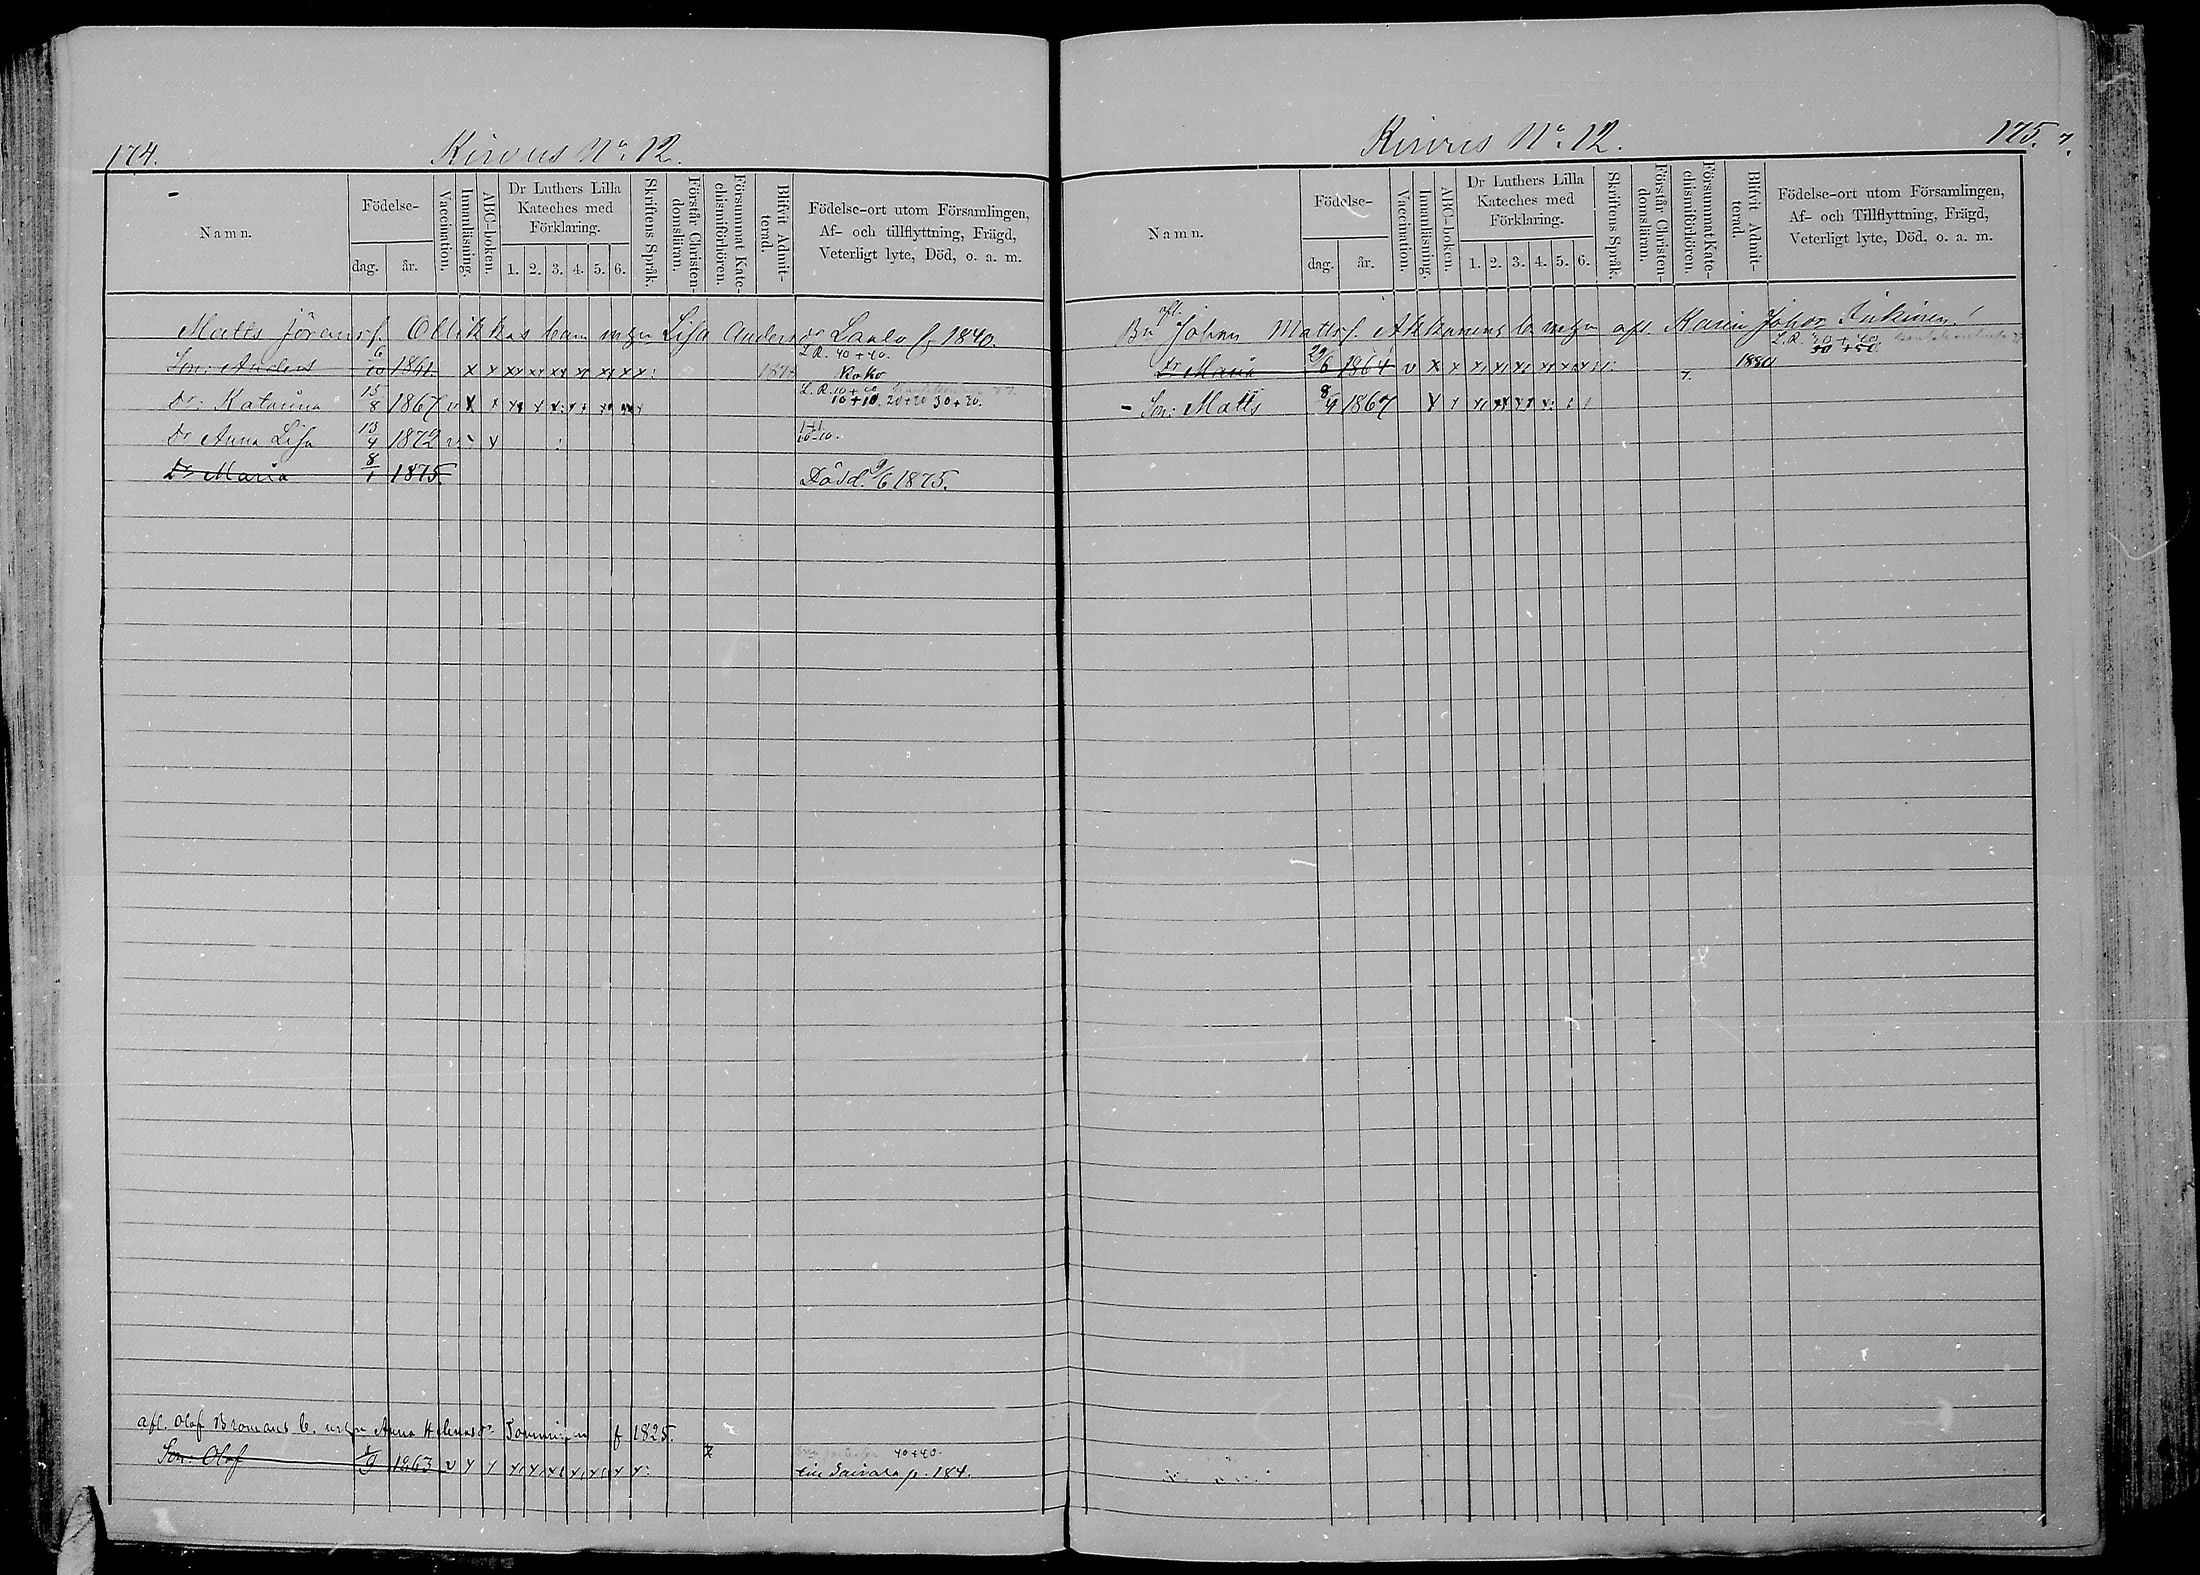 174.
Kirvus No 12.
Namn.
Födelse-
dag.
år.
Vaccination.
Innanläsning.
ABC-boken.
Dr Luthers Lilla
Kateches med
Förklaring.
1. 2. 3. 4. 5. 6.
Skriftens Språk.
Förstår Christen-
domsläran.
Försummat Kate-
chismiförhören.
Blifvit Admit-
terad.
Födelse-ort utom Församlingen,
Af- och tillflyttning, Frägd,
Veterligt lyte, Död, o. a. m.
Matts Göranss. Ollikkas barn m Lisa Anders dr Laulo f. 1840.
L.R. 40+40.
Son: Anders 6/10 1861. x x xx x x x x x x 187 Koko
L.R. 10+
Dr: Katarina 15/8 1867 v x x 10+10. 20+20 30+30.
Dr Anna Lisa 13/4 1872 v x 10-10.
Dr Maria 8/1 1875. Död. 9/6 1875.
afl. Olof Bromans b. m Anna f 1825.
40+40.
Son: Olof 1863 v x x p. 184.
Kirvus No 12.
175.
7.
Namn.
Födelse-
dag.
år.
Vaccination.
Innanläsning.
ABC-boken.
Dr Luthers Lilla
Kateches med
Förklaring.
1. 2. 3. 4. 5. 6.
Skriftens Språk.
Förstår Christen-
domsläran.
Försummat Kate-
chismiförhören.
Blifvit Admit-
terad.
Födelse-ort utom Församlingen,
Af- och Tillflyttning, Frägd,
Veterligt lyte, Död, o. a. m.
afl.
Bn Johan Mattss. Akkanens b. m afl. Karin Johsdr
L.R.
Dr Maria 29/6 1864 v x x 7. 1880 50+50
- Son: Matts 8/4 1867 x x